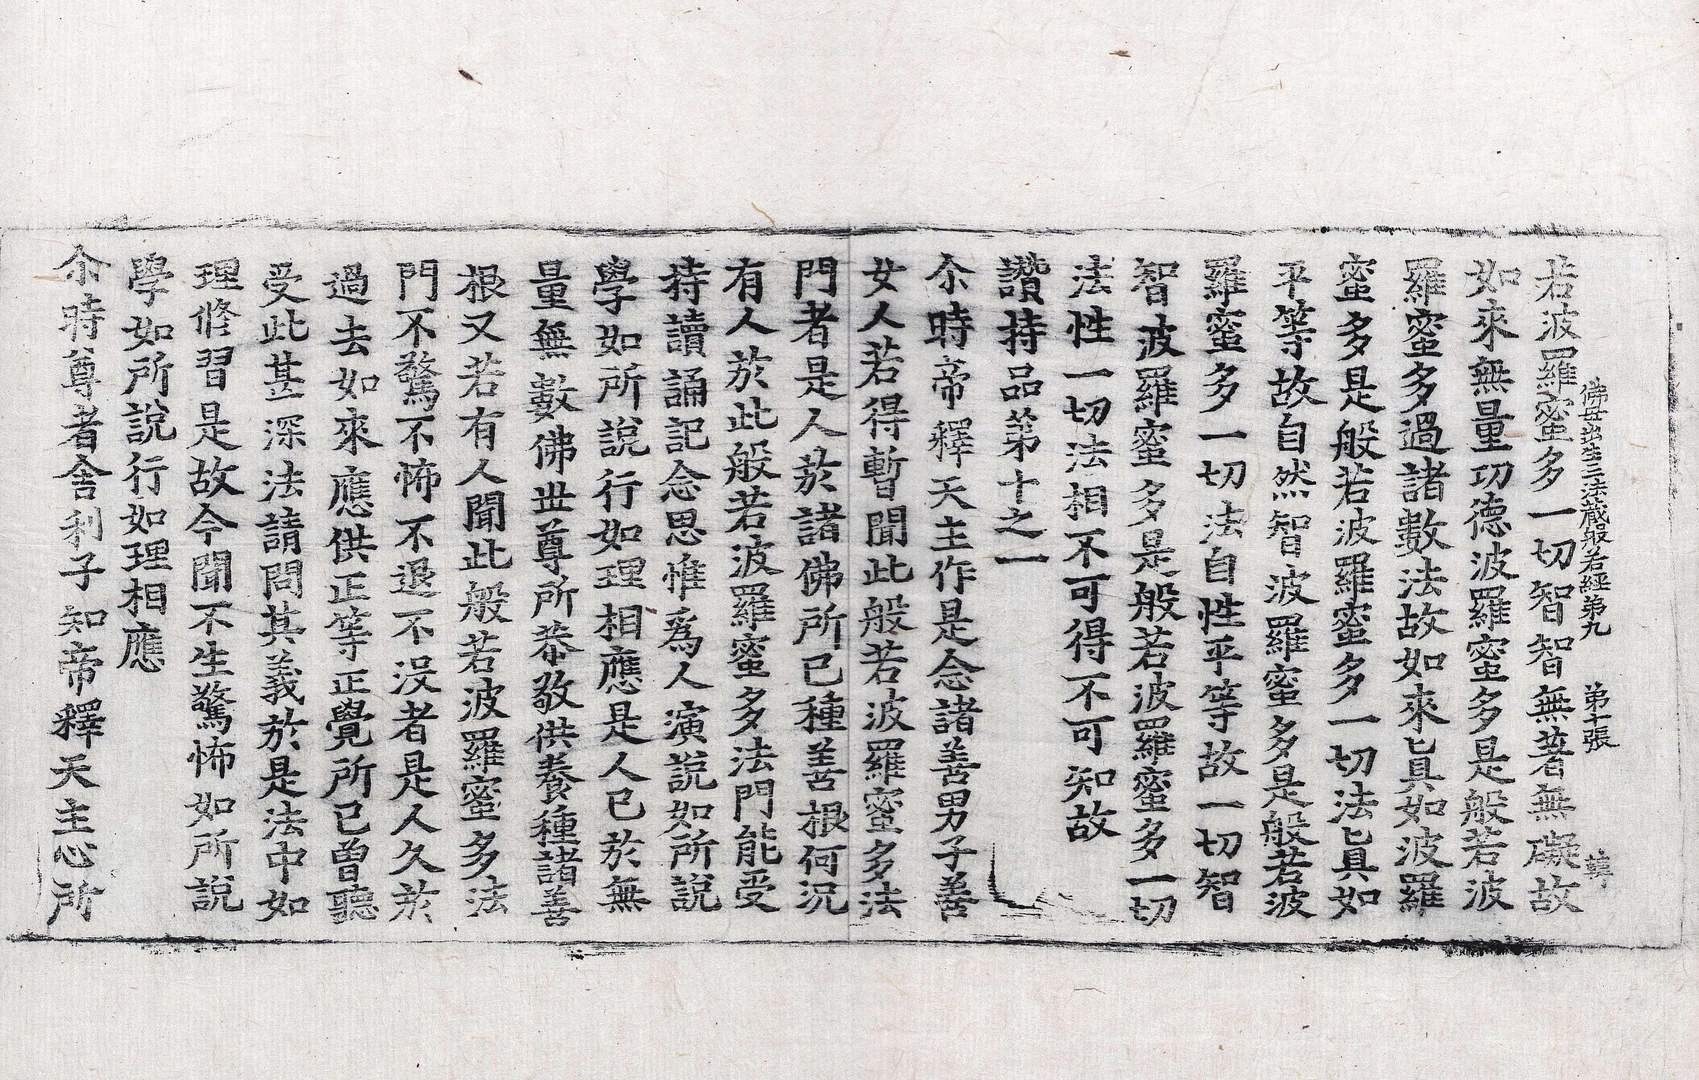 佛母出生三法藏般若經第九　第十張
若波羅蜜多一切智智無著無礙故
如來無量功德波羅蜜多是般若波
羅蜜多過諸數法故如來㫖真如波羅
蜜多是般若波羅蜜多一切法㫖真如
平等故自然智波羅蜜多是般若波
羅蜜多一切法自性平等故一切智
智波羅蜜多是般若波羅蜜多一切
法性一切法相不可得不可知故
讚持品第十之一
尒時帝釋天主作是念諸善男子善
女人若得暫聞此般若波羅蜜多法
門者是人於諸佛所已種善根何況
有人於此般若波羅蜜多法門能受
持讀誦記念思惟爲人演說如所說
學如所說行如理相應是人已於無
量無數佛世尊所恭敬供養種諸善
根又若有人聞此般若波羅蜜多法
門不驚不怖不退不没者是人久於
過去如來應供正等正覺所已曾聽
受此甚深法請問其義於是法中如
理修習是故今聞不生驚怖如所說
學如所說行如理相應
尒時尊者舍利子知帝釋天主心所